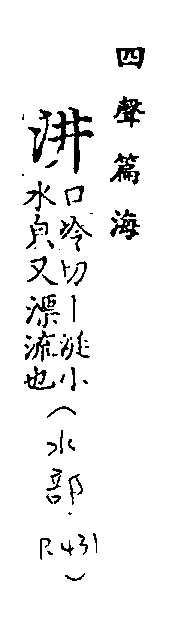 四聲篇海
汫 口冷切｜涏小
水皃又漂流也
(水部.
P.431)